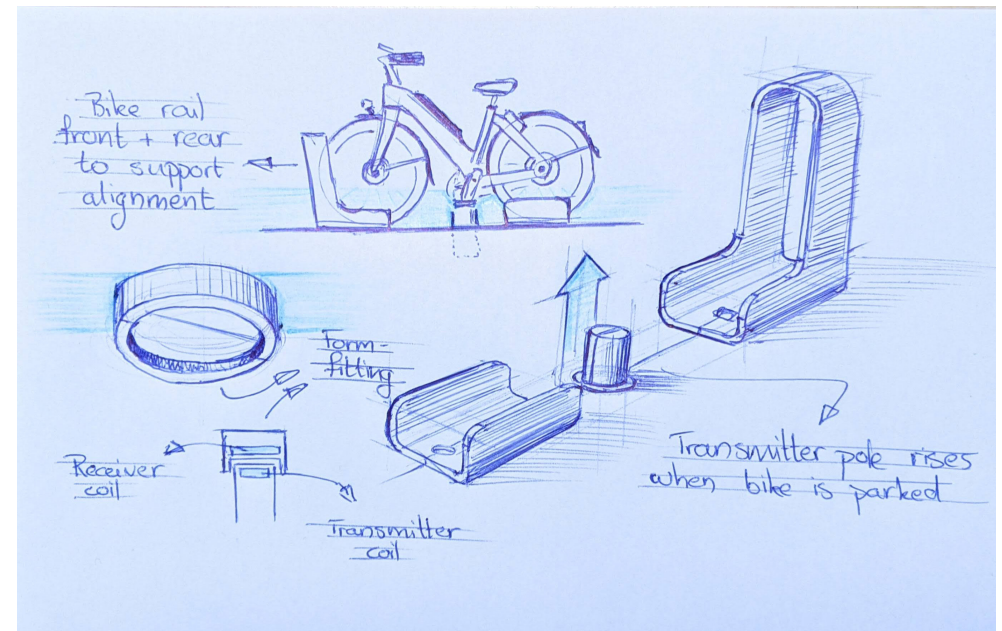 Bike rail
front + rear
to support
alignment
Form-
fitting
Receiver
coil
Transmitter
coil
Transmitter pole rises
when bike is parked